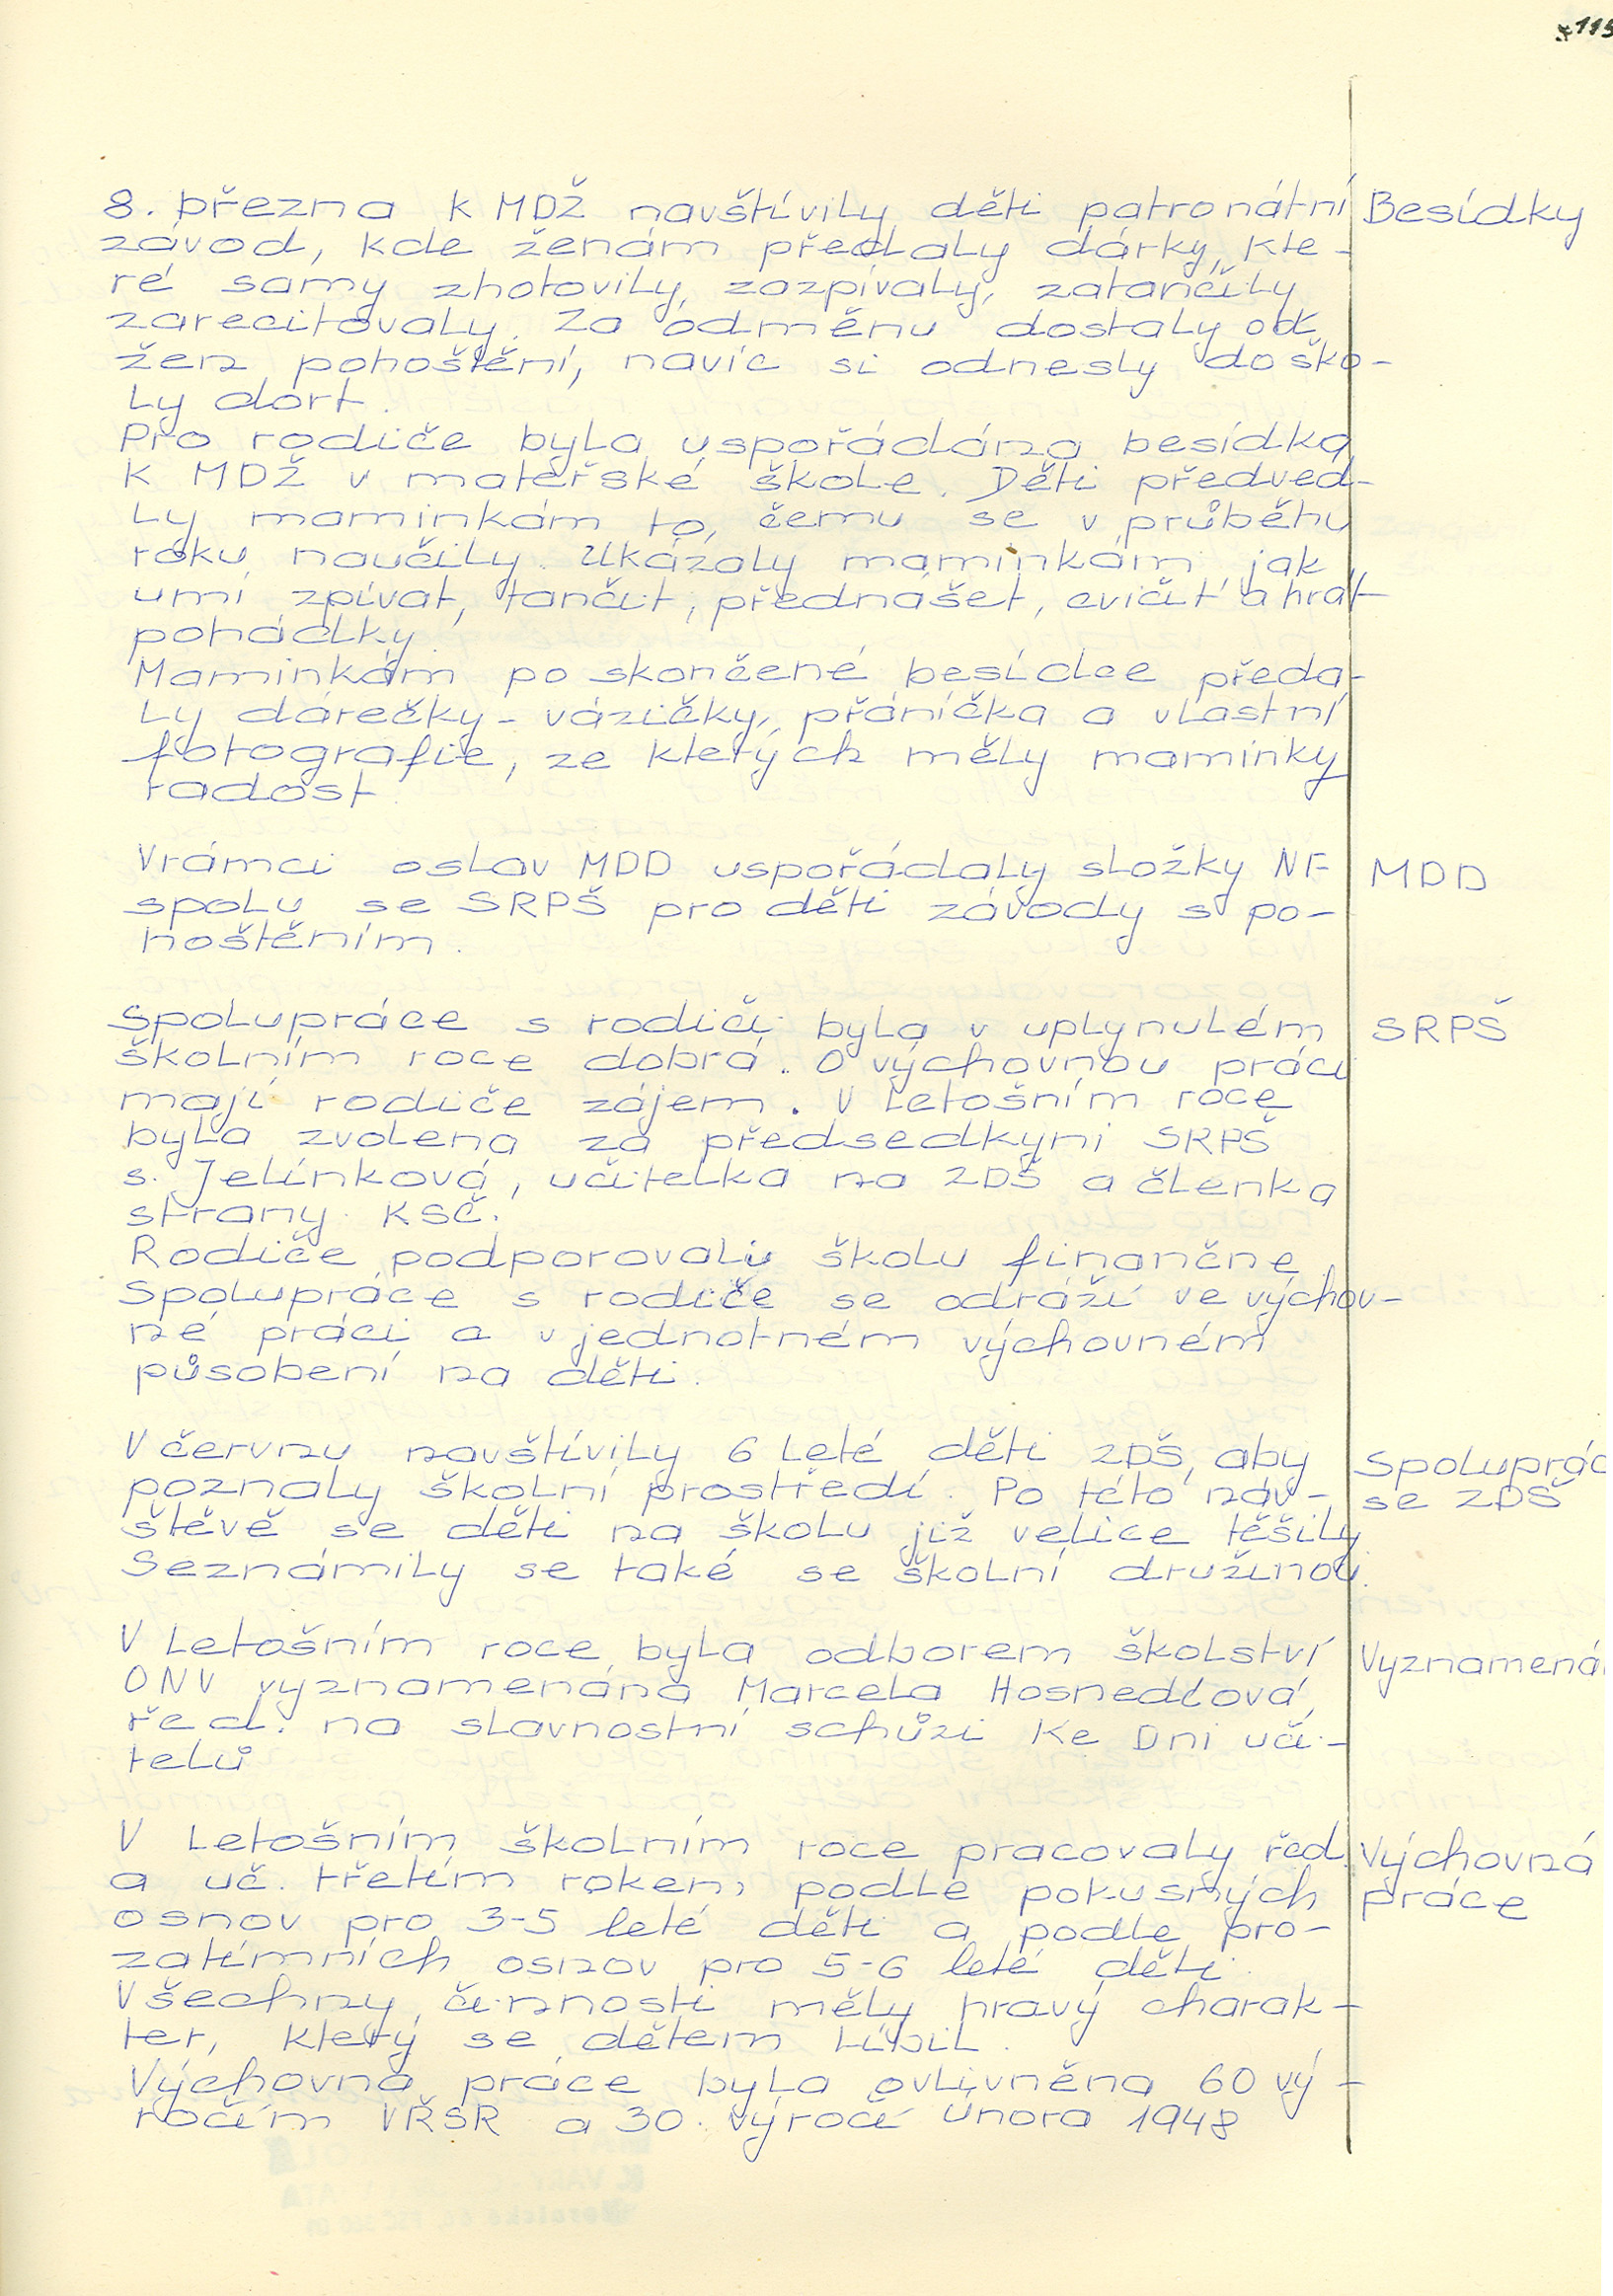 8. března k MDŽ navštívily děti patronátní Besídky
závod, kde ženám předaly dárky, kte-
ré samy zhotovily, zazpívaly, zatančily
zarecitovaly. Za odměnu dostaly od
žen pohoštění, navíc si odnesly do ško-
ly dort.
Pro rodiče byla uspořádána besídka
k MDŽ v mateřské škole. Děti předved-
ly maminkám to, čemu se v průběhu
roku naučily. Ukázaly maminkám jak
umí zpívat, tančit, přednášet, cvičit a hrát
pohádky
Maminkám po skončené besídce předa-
ly dárečky - vázičky, přáníčka a vlastní
fotografie, ze kterých měly maminky
radost.
V rámci oslav MDD uspořádaly složky NF MDD
spolu se SRPŠ pro děti závody s po-
hoštěním.
Spolupráce s rodiči byla v uplynulém SRPŠ
školním roce dobrá. O výchovnou práci
mají rodiče zájem. V letošním roce
byla zvolena za předsedkyni SRPŠ
s. Jelínková, učitelka na ZDŠ a členka
strany KSČ.
Rodiče podporovali školu finančne
Spolupráce s rodiče se odráží ve výchov-
né práci a v jednotném výchovném
působení na děti.
V červnu navštívily 6 leté děti ZDŠ, aby
poznaly školní prostředí. Po této náv- se ZDŠ
štěvě se děti na školu již velice těšily
Seznámily se také se školní družinou.
V letošním roce byla odborem školství
ONV vyznamenána Marcela Hosnedlová,
řed. na slavnostní schůzi Ke Dni uči-
telů
V letošním školním roce pracovaly řed. Výchovná
a uč. třetím rokem podle pokusných práce
osnov pro 3-5 leté děti a podle pro-
zatímních osnov pro 5-6 leté děti.
Všechny činnosti měly hravý charak-
ter, který se dětem líbil.
Výchovná práce byla ovlivněna 60 vý-
ročím VŘSR a 30. výročí února 1948